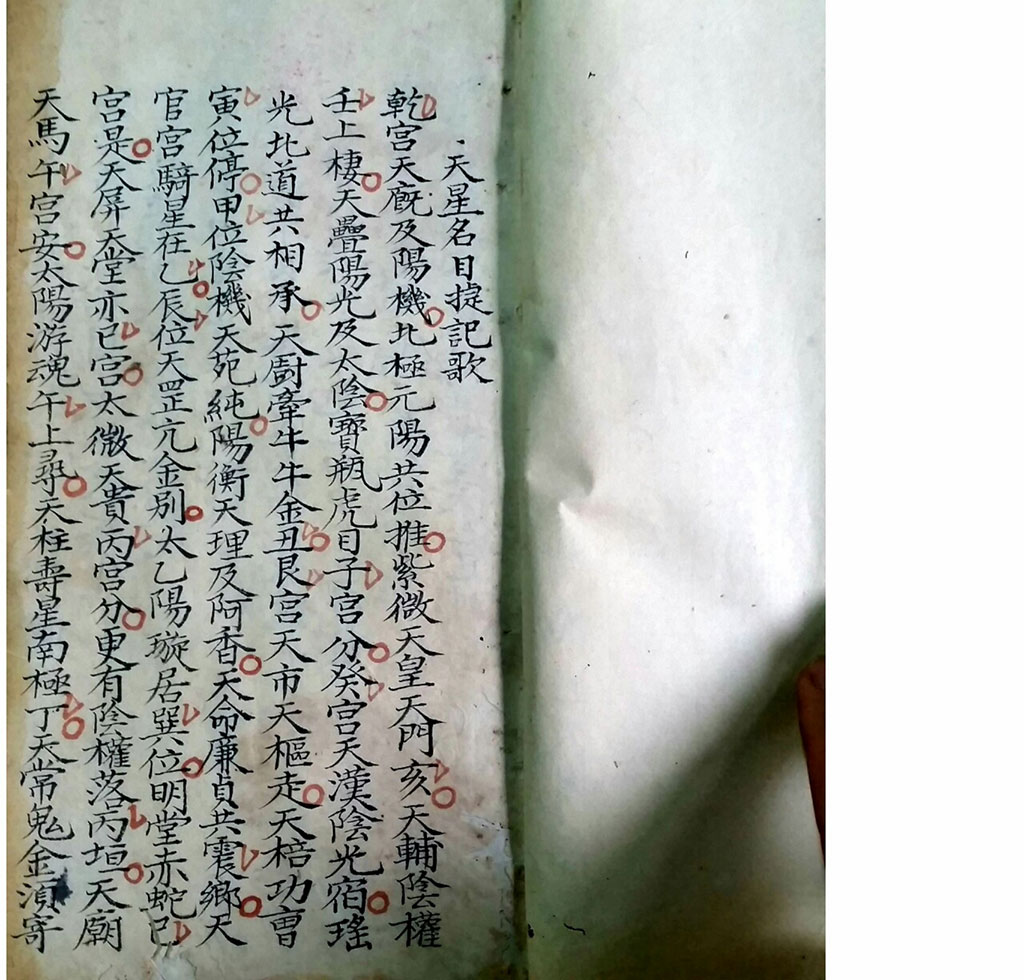 天星名目提記歌
乾宮天廐及陽機北極元陽共位推紫微天皇天門亥天輔陰權
壬上棲天疊陽光及太陰寶瓶虎目子宮分癸宮天漢陰光宿瑤
光北道共相承天厨牽牛牛金丑艮宮天市天樞走天棓功曹
寅位停甲位陰機天苑純陽衡天理及阿香天命廉貞共震鄉天
官宮騎星在乙辰位天罡亢金別太乙陽璇居巽位明堂赤蛇巳
宮是天屏天堂亦巳宮太微天貴丙宮分更有陰權落丙垣天廟
天馬午宮安太陽游魂午上尋天柱壽星南極丁天常鬼金須寄